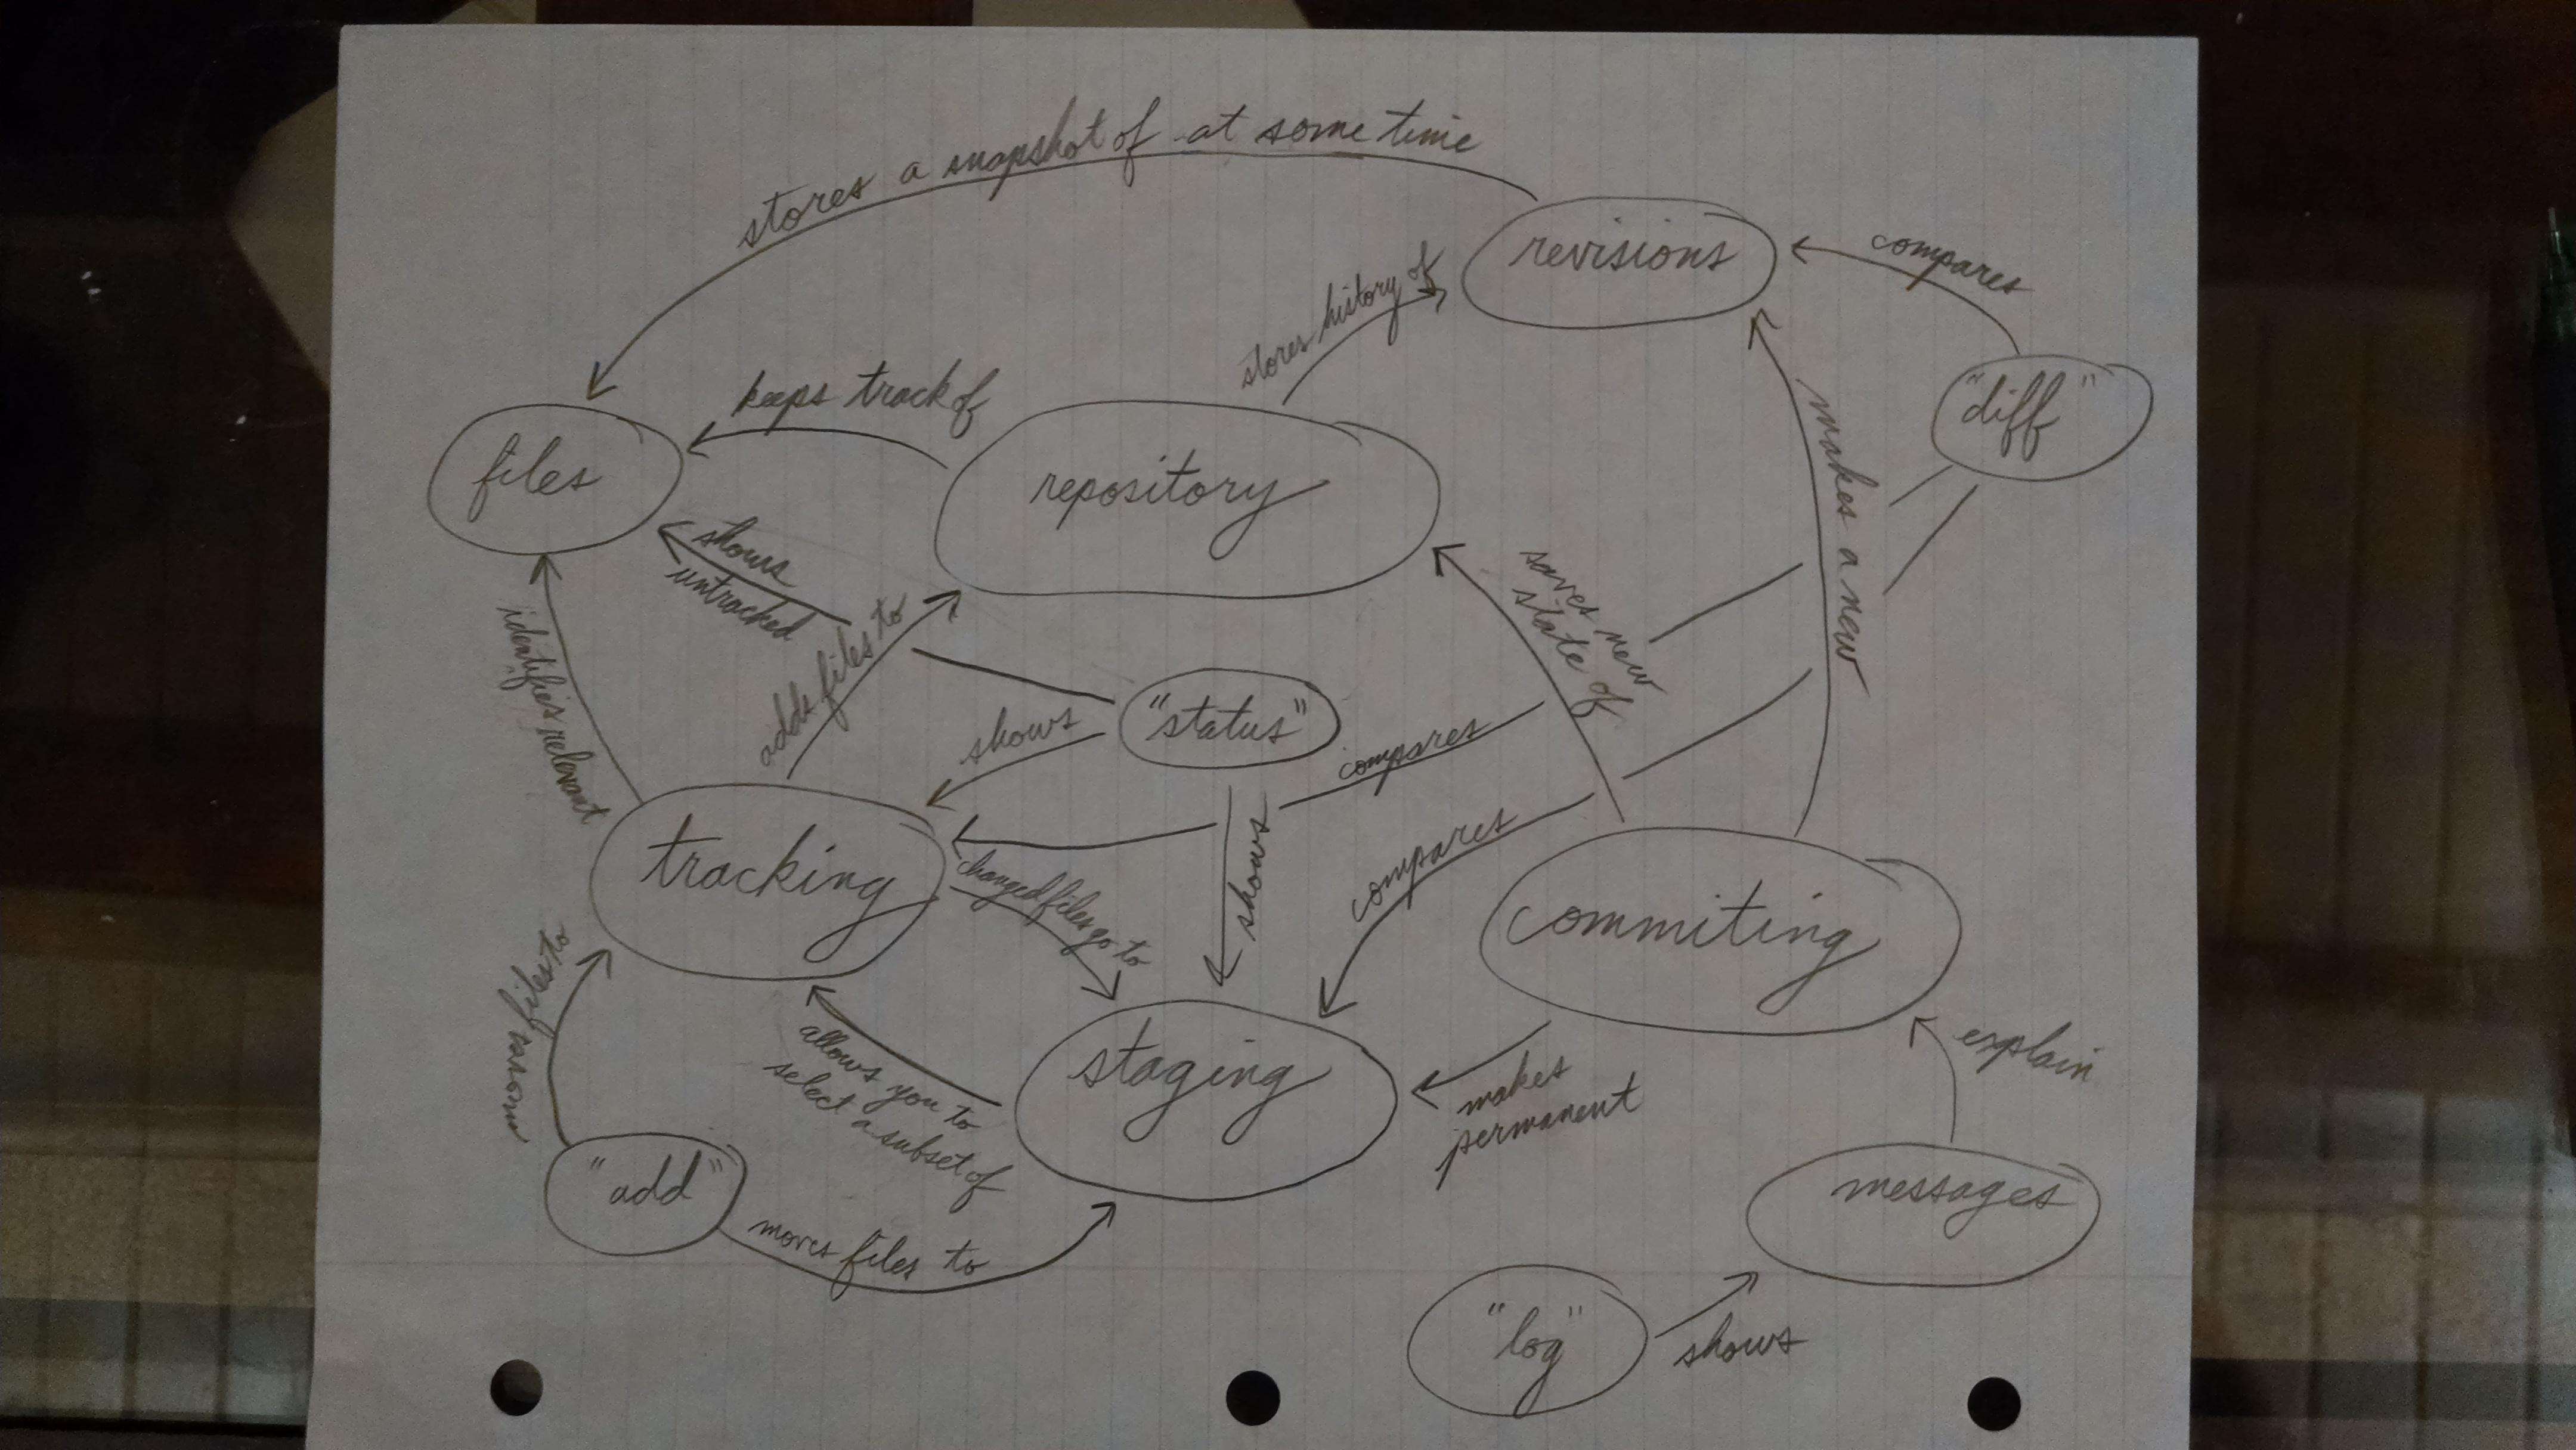 stores a snapshot of at some time
revisions
compares
stores history of
"diff"
keeps track of
files
repository
makes a new
shows
untracked
saves new
state of
adds files to
identifies relevant
"status"
shows
compares
shows
compares
tracking
changed files go to
commiting
moves files to
allows you to
select a subset of
staging
makes
permanent
explain
"add"
moves files to
messages
"log"
shows